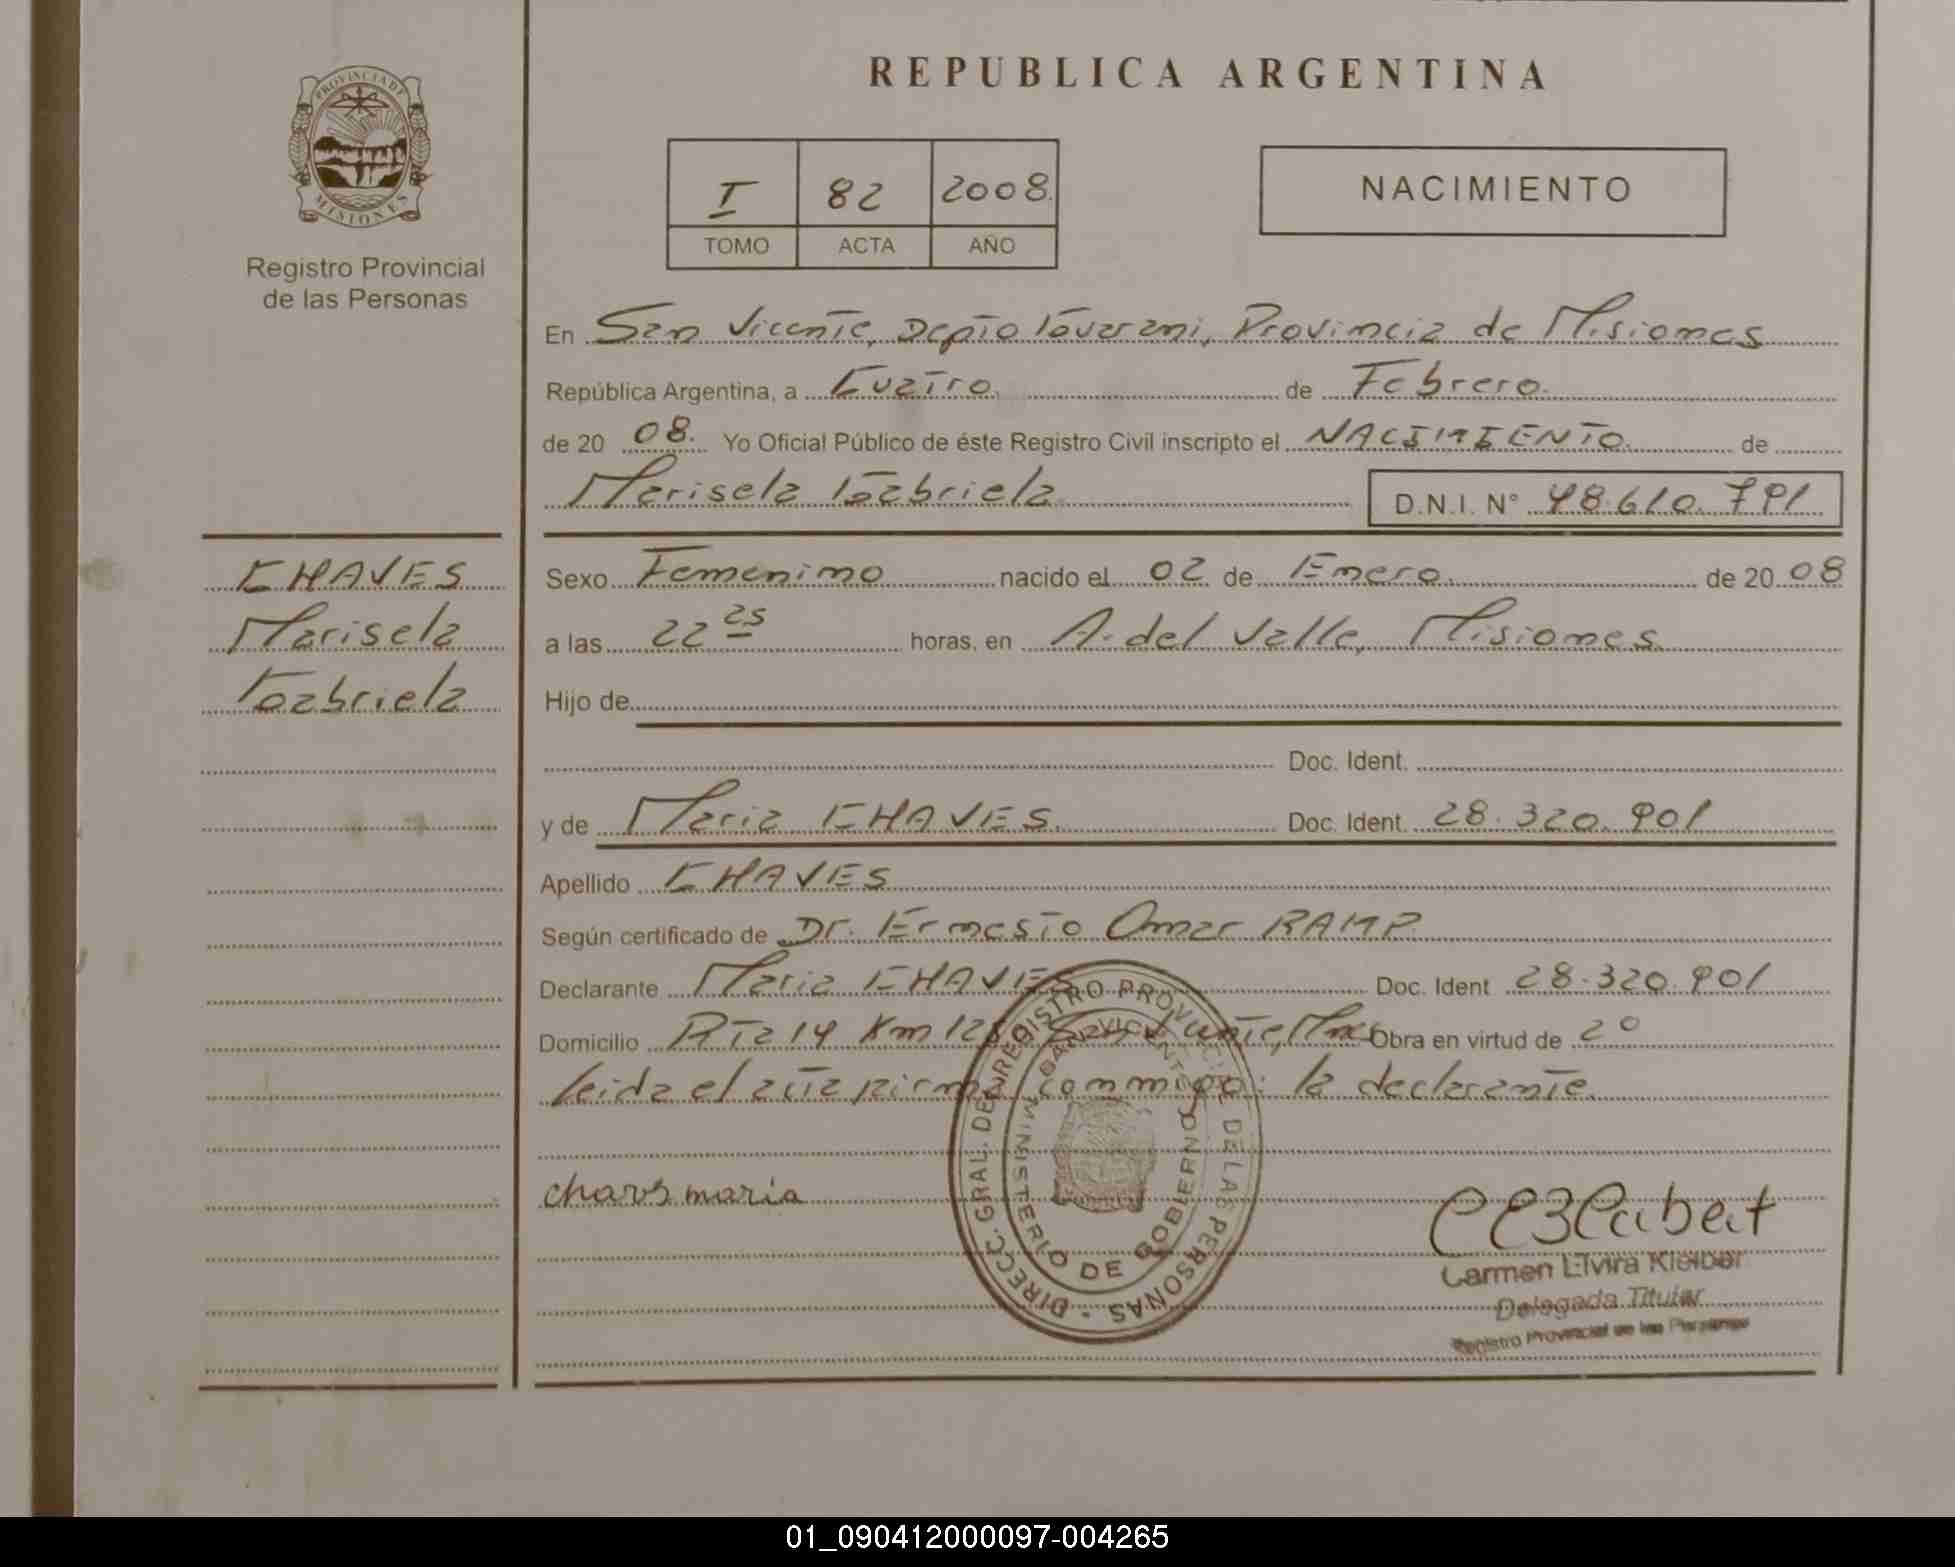 REPUBLICA ARGENTINA
PROVINCIA DE MISIONES
Registro Provincial
de las Personas
I 82 2008.
TOMO ACTA AÑO
NACIMIENTO
En San Vicente, Depto Guarani, Provincia de Misiones
República Argentina, a Cuatro. de Febrero.
de 20 08. Yo Oficial Público de éste Registro Civil inscripto el NACIMIENTO. de
Marisela Gabriela. D.N.I. N° 48.610.791
CHAVES
Marisela
Gabriela
Sexo Femenino nacido el 02 de Enero. de 20 08
a las 22 25 horas, en A. del Valle, Misiones.
Hijo de
Doc. Ident.
y de Maria CHAVES. Doc. Ident. 28.320.901
Apellido CHAVES
Según certificado de Dr. Ernesto Omar RAMP.
Declarante Maria CHAVES Doc. Ident 28.320.901
Domicilio Rta 14 Km San Vicente, Mnes Obra en virtud de 2°
leida el acta firma conmigo: la declarante.
maria
DIRECC. GRAL. DEL REGISTRO PROVINCIAL DE LAS PERSONAS
SAN VICENTE
MINISTERIO DE GOBIERNO
Carmen Elvira Kleiber
Delegada Titular
Registro Provincial de las Personas
01_090412000097-004265